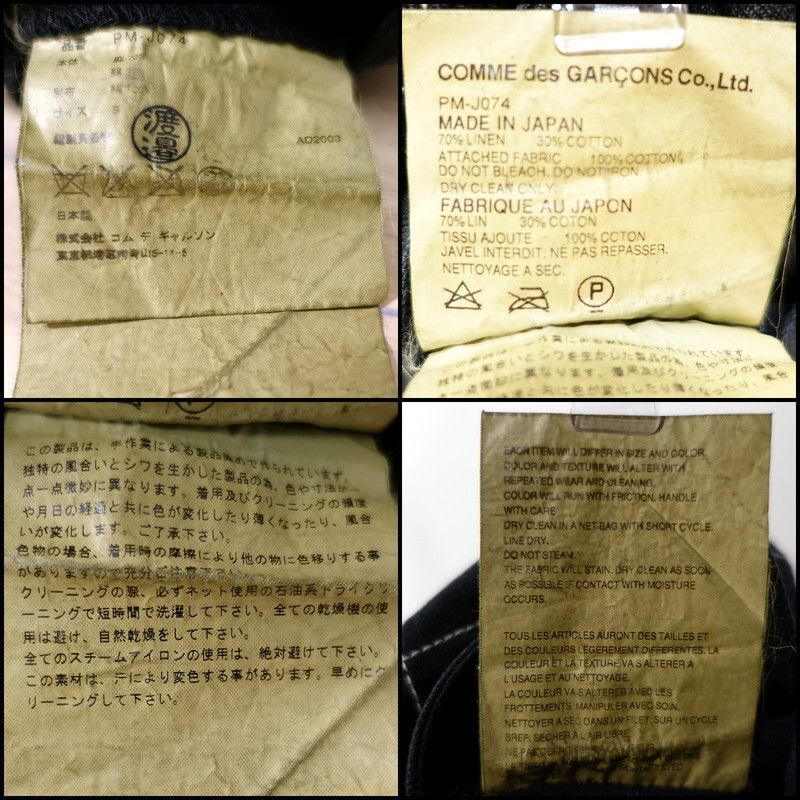 品番 PM-J074
本体 麻 70%
綿 30%
別布 綿 100%
サイズ S
渡邊
AD2003
日本製
株式会社 コム デ ギャルソン
東京都港区南青山5-11-5
COMME des GARÇONS Co.,Ltd.
PM-J074
MADE IN JAPAN
70% LINEN 30% COTTON
ATTACHED FABRIC 100% COTTON
DO NOT BLEACH. DO NOT IRON
DRY CLEAN ONLY
FABRIQUE AU JAPON
70% LIN 30% COTON
TISSU AJOUTE 100% COTON
JAVEL INTERDIT. NE PAS REPASSER.
NETTOYAGE A SEC.
P
この製品は、手作業による
独特の風合いとシワを生かした製品の為、色や寸法は
点一点微妙に異なります。着用及びクリーニングの頻度
この製品は、手作業による製品染めで作られています。
独特の風合いとシワを生かした製品の為、色や寸法は一
点一点微妙に異なります。着用及びクリーニングの頻度
や月日の経過と共に色が変化したり薄くなったり、風合
いが変化します。ご了承下さい。
色物の場合、着用時の摩擦により他の物に色移りする事
がありますので充分ご注意下さい。
クリーニングの際、必ずネット使用の石油系ドライクリ
ーニングで短時間で洗濯して下さい。全ての乾燥機の使
用は避け、自然乾燥をして下さい。
全てのスチームアイロンの使用は、絶対避けて下さい。
この素材は、汗により変色する事があります。早めにク
リーニングして下さい。
EACH ITEM WILL DIFFER IN SIZE AND COLOR.
COLOR AND TEXTURE WILL ALTER WITH
REPEATED WEAR AND CLEANING.
COLOR WILL RUN WITH FRICTION. HANDLE
WITH CARE
DRY CLEAN IN A NET BAG WITH SHORT CYCLE.
LINE DRY.
DO NOT STEAM.
THE FABRIC WILL STAIN. DRY CLEAN AS SOON
AS POSSIBLE IF CONTACT WITH MOISTURE
OCCURS.
TOUS LES ARTICLES AURONT DES TAILLES ET
DES COULEURS LEGEREMENT DIFFERENTES. LA
COULEUR ET LA TEXTURE VA S'ALTERER A
L'USAGE ET AU NETTOYAGE.
LA COULEUR VA S'ALTERER AVEC LES
FROTTEMENTS. MANIPULER AVEC SOIN.
NETTOYER A SEC DANS UN FILET, SUR UN CYCLE
BREF, SECHER A L'AIR LIBRE
NE PAS
LE TISSU